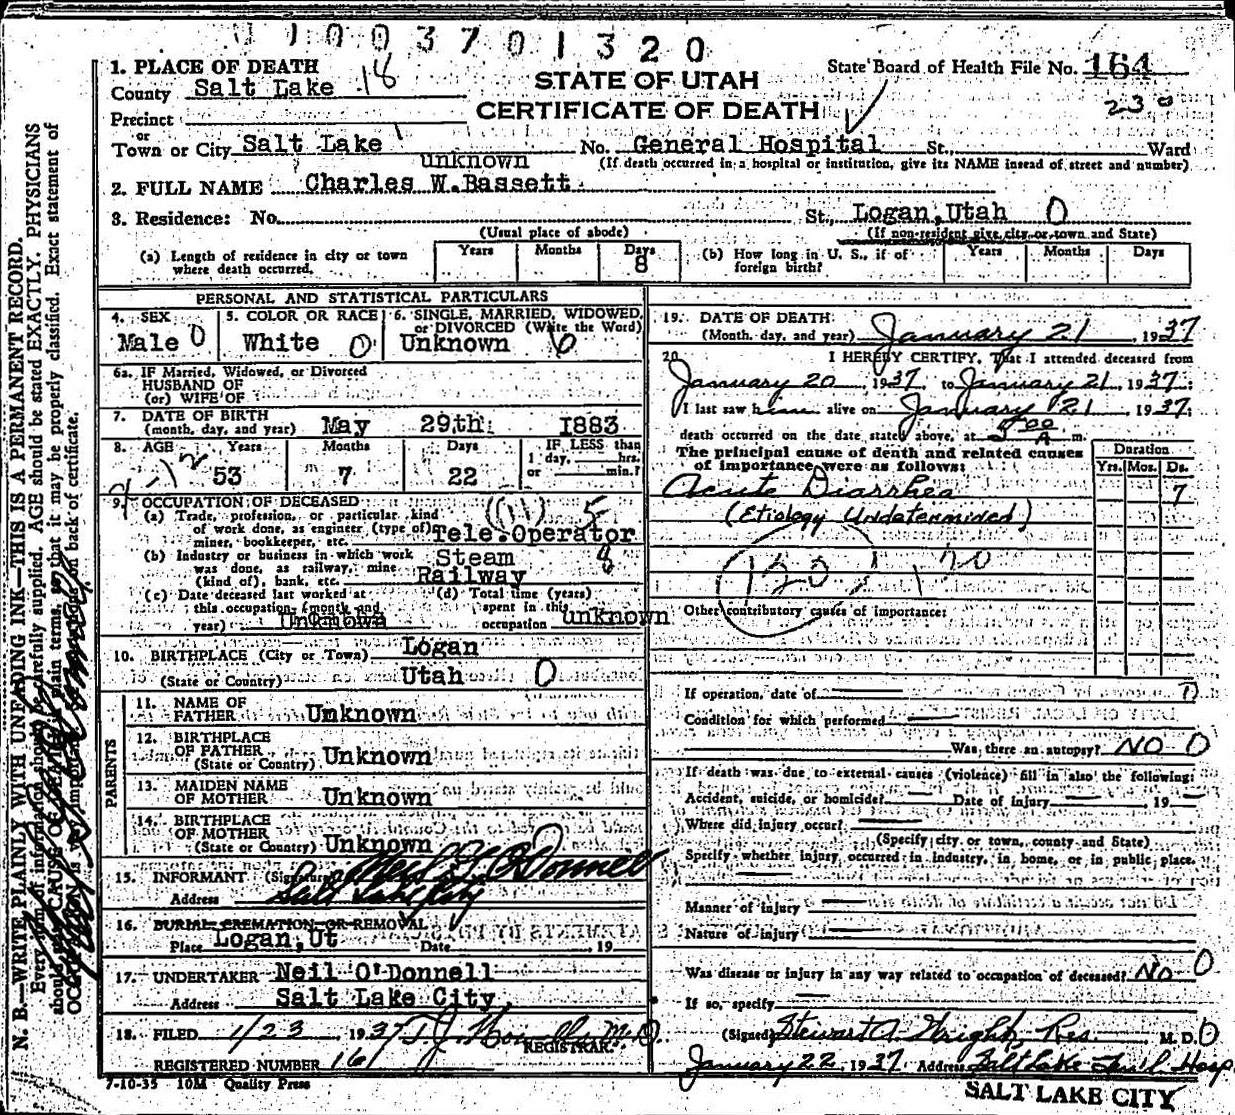 1003701320
1. PLACE OF DEATH
County Salt Lake 18
STATE OF UTAH
CERTIFICATE OF DEATH
State Board of Health File No. 164
230
Precinct
or
Town or City Salt Lake No. General Hospital St. Ward
(If death occurred in a hospital or institution, give its NAME insead of street and number)
unknown
2. FULL NAME Charles W. Bassett
3. Residence: No. St., Logan, Utah 0
(Usual place of abode)
(If non-resident give city or town and State)
(a) Length of residence in city or town where death occurred. Years Months Days 8
(b) How long in U. S., if of foreign birth? Years Months Days
PERSONAL AND STATISTICAL PARTICULARS
4. SEX Male 0
5. COLOR OR RACE White 0
6. SINGLE, MARRIED, WIDOWED, or DIVORCED (Write the Word) Unknown 6
6a. IF Married, Widowed, or Divorced
HUSBAND OF
(or) WIFE OF
7. DATE OF BIRTH
(month, day, and year) May 29th 1883
8. AGE Years 53 Months 7 Days 22
IF LESS than
1 day, hrs.
or min.?
9. OCCUPATION OF DECEASED
(a) Trade, profession, or particular kind
of work done, as engineer (type of)
miner, bookkeeper, etc. Tele. Operator
(b) Industry or business in which work
was done, as railway, mine
(kind of), bank, etc. Steam Railway 8
(c) Date deceased last worked at
this occupation (month and
year) Unknown
(d) Total time (years)
spent in this
occupation unknown
10. BIRTHPLACE (City or Town) Logan
(State or Country) Utah 0
PARENTS
11. NAME OF
FATHER Unknown
12. BIRTHPLACE
OF FATHER
(State or Country) Unknown
13. MAIDEN NAME
OF MOTHER Unknown
14. BIRTHPLACE
OF MOTHER
(State or Country) Unknown
15. INFORMANT (Signature) Neil O'Donnell
Address Salt Lake City
16. BURIAL CREMATION OR REMOVAL
Place Logan, Ut Date 19
17. UNDERTAKER Neil O'Donnell
Address Salt Lake City,
18. FILED 1/23 1937 M.D.
REGISTRAR.
REGISTERED NUMBER 161
7-10-35 10M Quality Press
19. DATE OF DEATH:
(Month, day, and year) January 21, 1937
20. I HEREBY CERTIFY, That I attended deceased from
January 20, 1937, to January 21, 1937:
I last saw him alive on January 21, 1937:
death occurred on the date stated above, at 5 00 A m.
The principal cause of death and related causes
of importance were as follows:
Duration
Yrs. Mos. Ds.
Acute Diarrhea 7
(Etiology Undetermined)
120
Other contributory causes of importance:
If operation, date of
Condition for which performed
Was there an autopsy? NO 0
If death was due to external causes (violence) fill in also the following:
Accident, suicide, or homicide? Date of Injury 19
Where did injury occur?
(Specify city or town, county and State)
Specify whether injury occurred in industry, in home, or in public place.
Manner of injury
Nature of injury
Was disease or injury in any way related to occupation of deceased? No 0
If so, specify
(Signed) Stewart A. Wright, Res. M. D.
January 22, 1937. Address Salt Lake Gen'l Hosp
SALT LAKE CITY
N. B.—WRITE PLAINLY WITH UNFADING INK—THIS IS A PERMANENT RECORD.
Every item of information should be carefully supplied. AGE should be stated EXACTLY. PHYSICIANS
should state CAUSE OF DEATH in plain terms, so that it may be properly classified. Exact statement of
OCCUPATION is very important. back of certificate.